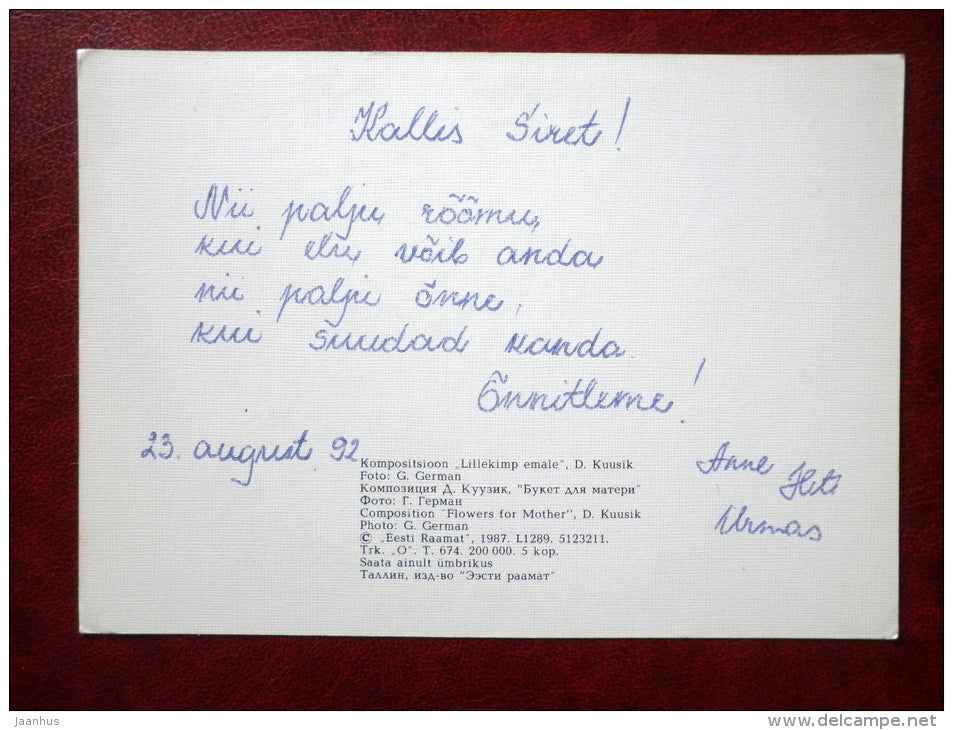 Kallis Siret!
Nii palju rõõmu,
kui elu võib anda
nii palju õnne,
kui suudad kanda.
Õnnitleme!
23. august 92
Anne
Urmas
Kompositsioon „Lillekimp emale", D. Kuusik
Foto: G. German
Композиция Д. Куузик, "Букет для матери"
Фото: Г. Герман
Composition "Flowers for Mother", D. Kuusik
Photo: G. German
© „Eesti Raamat", 1987. L1289. 5123211.
Trk. „O". T. 674. 200 000. 5 kop.
Saata ainult ümbrikus
Таллин, изд-во "Ээсти раамат"
jaanhus
www.delcampe.net